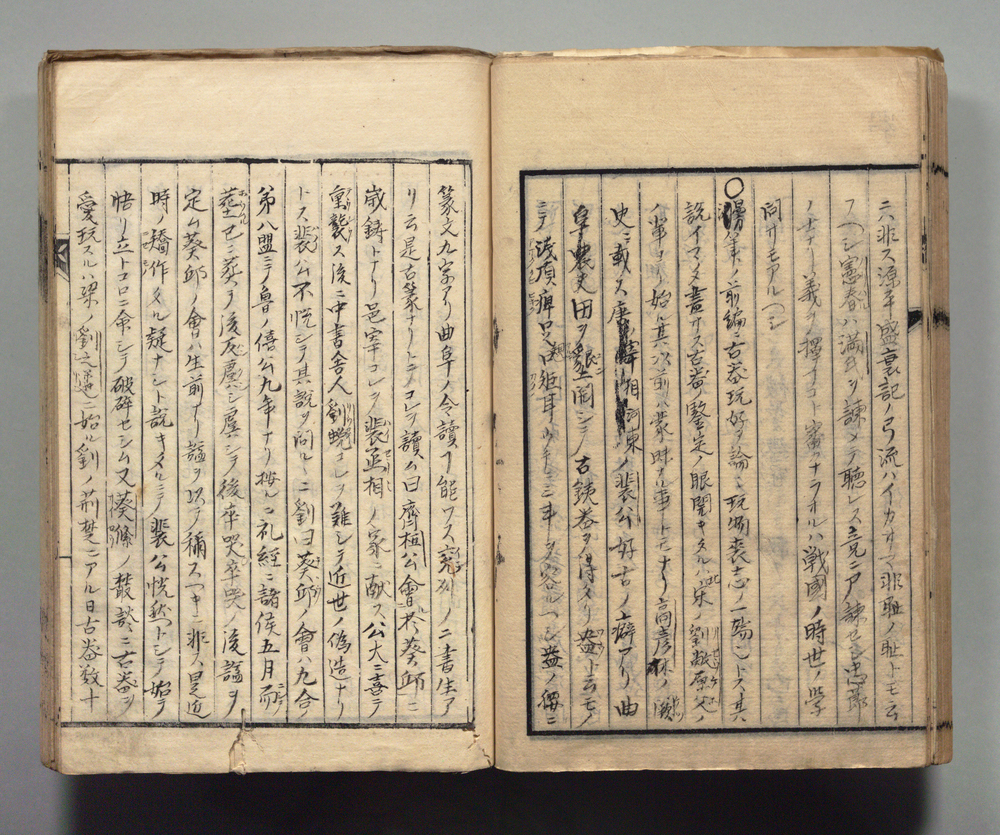 ニハ非ス源平盛衰記ノ弓流ハイカサマ非耻ノ耻トモ云
フヘシ憲春ハ満氏ヲ諫メテ聴レス
ノ士ナリ義ヲ擇フコト審カナラサルハ戦國ノ時世ノ学
問サモアルヘシ
〇漫筆ノ前編ニ古器玩好ヲ論シ玩物喪志ノ一端トス其
説イマタ盡サス古器ノ鑒定ノ眼開キタルハ宋ノ劉敞原父ノ
輩ヨリ始ル其以前ハ蒙昧ナル事トモナリ高彦休ノ闕
史ニ載ス唐ノ河東ノ裴公好古ノ癖アリ曲
阜ノ農夫田ヲ墾開シテ古鉄器ヲ得タリ盎ト云モノ
ニテ浅項痺足規矩耳ノ三斗ヲ容ルヘシ盎ノ腰ニ
篆文九字アリ曲阜ノ令讀コト能ワス兖州ノ一書生ア
リ云是古篆ナリトテコレヲ讀ム曰齊桓公會於葵邱ニ
歳鋳トナリ邑宰コレヲ裴丞相ノ家ニ献ス公大ニ喜テ
宝襲ス後ニ中書舎人劉蛻コレヲ難シテ近世ノ偽造ナリ
トス裴公不悦シテ其説ヲ問ルヽニ劉曰葵邱ノ會ハ九合ノ
第八盟ニテ魯ノ僖公九年ナリ按ルニ礼経ニ諸侯五月而
葬已ニ葬テ後反虞シ虞シテ後卒哭卒哭ノ後諡ヲ
定ム葵邱ノ會ハ生前ナリ諡ヲ以テ稱スヘキニ非ス是近
時ノ矯作タル疑ナシト説キタルニテ裴公恍然トシテ始テ
悟リ立トコロニ命シテ破碎セシム又蔡絛ノ叢談ニ古器ヲ
愛玩スルハ梁ノ劉之遴ニ始ル劉ノ荊楚ニアル日古器数十